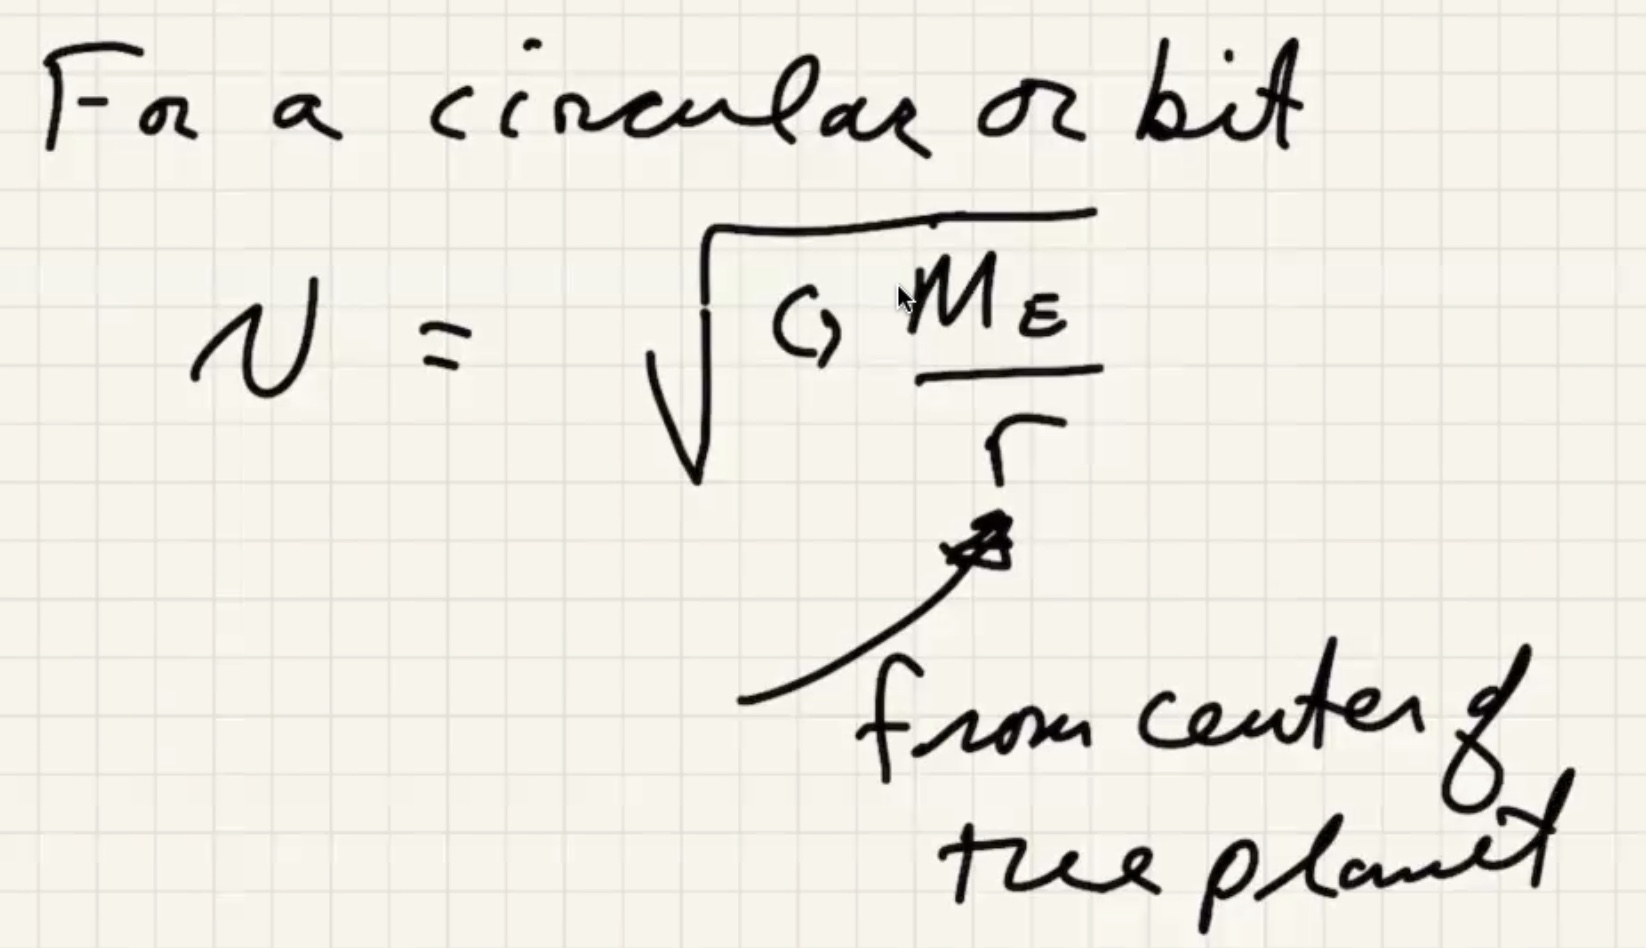 For a circular orbit
v = √(G M_E / r)
from center of
the planet